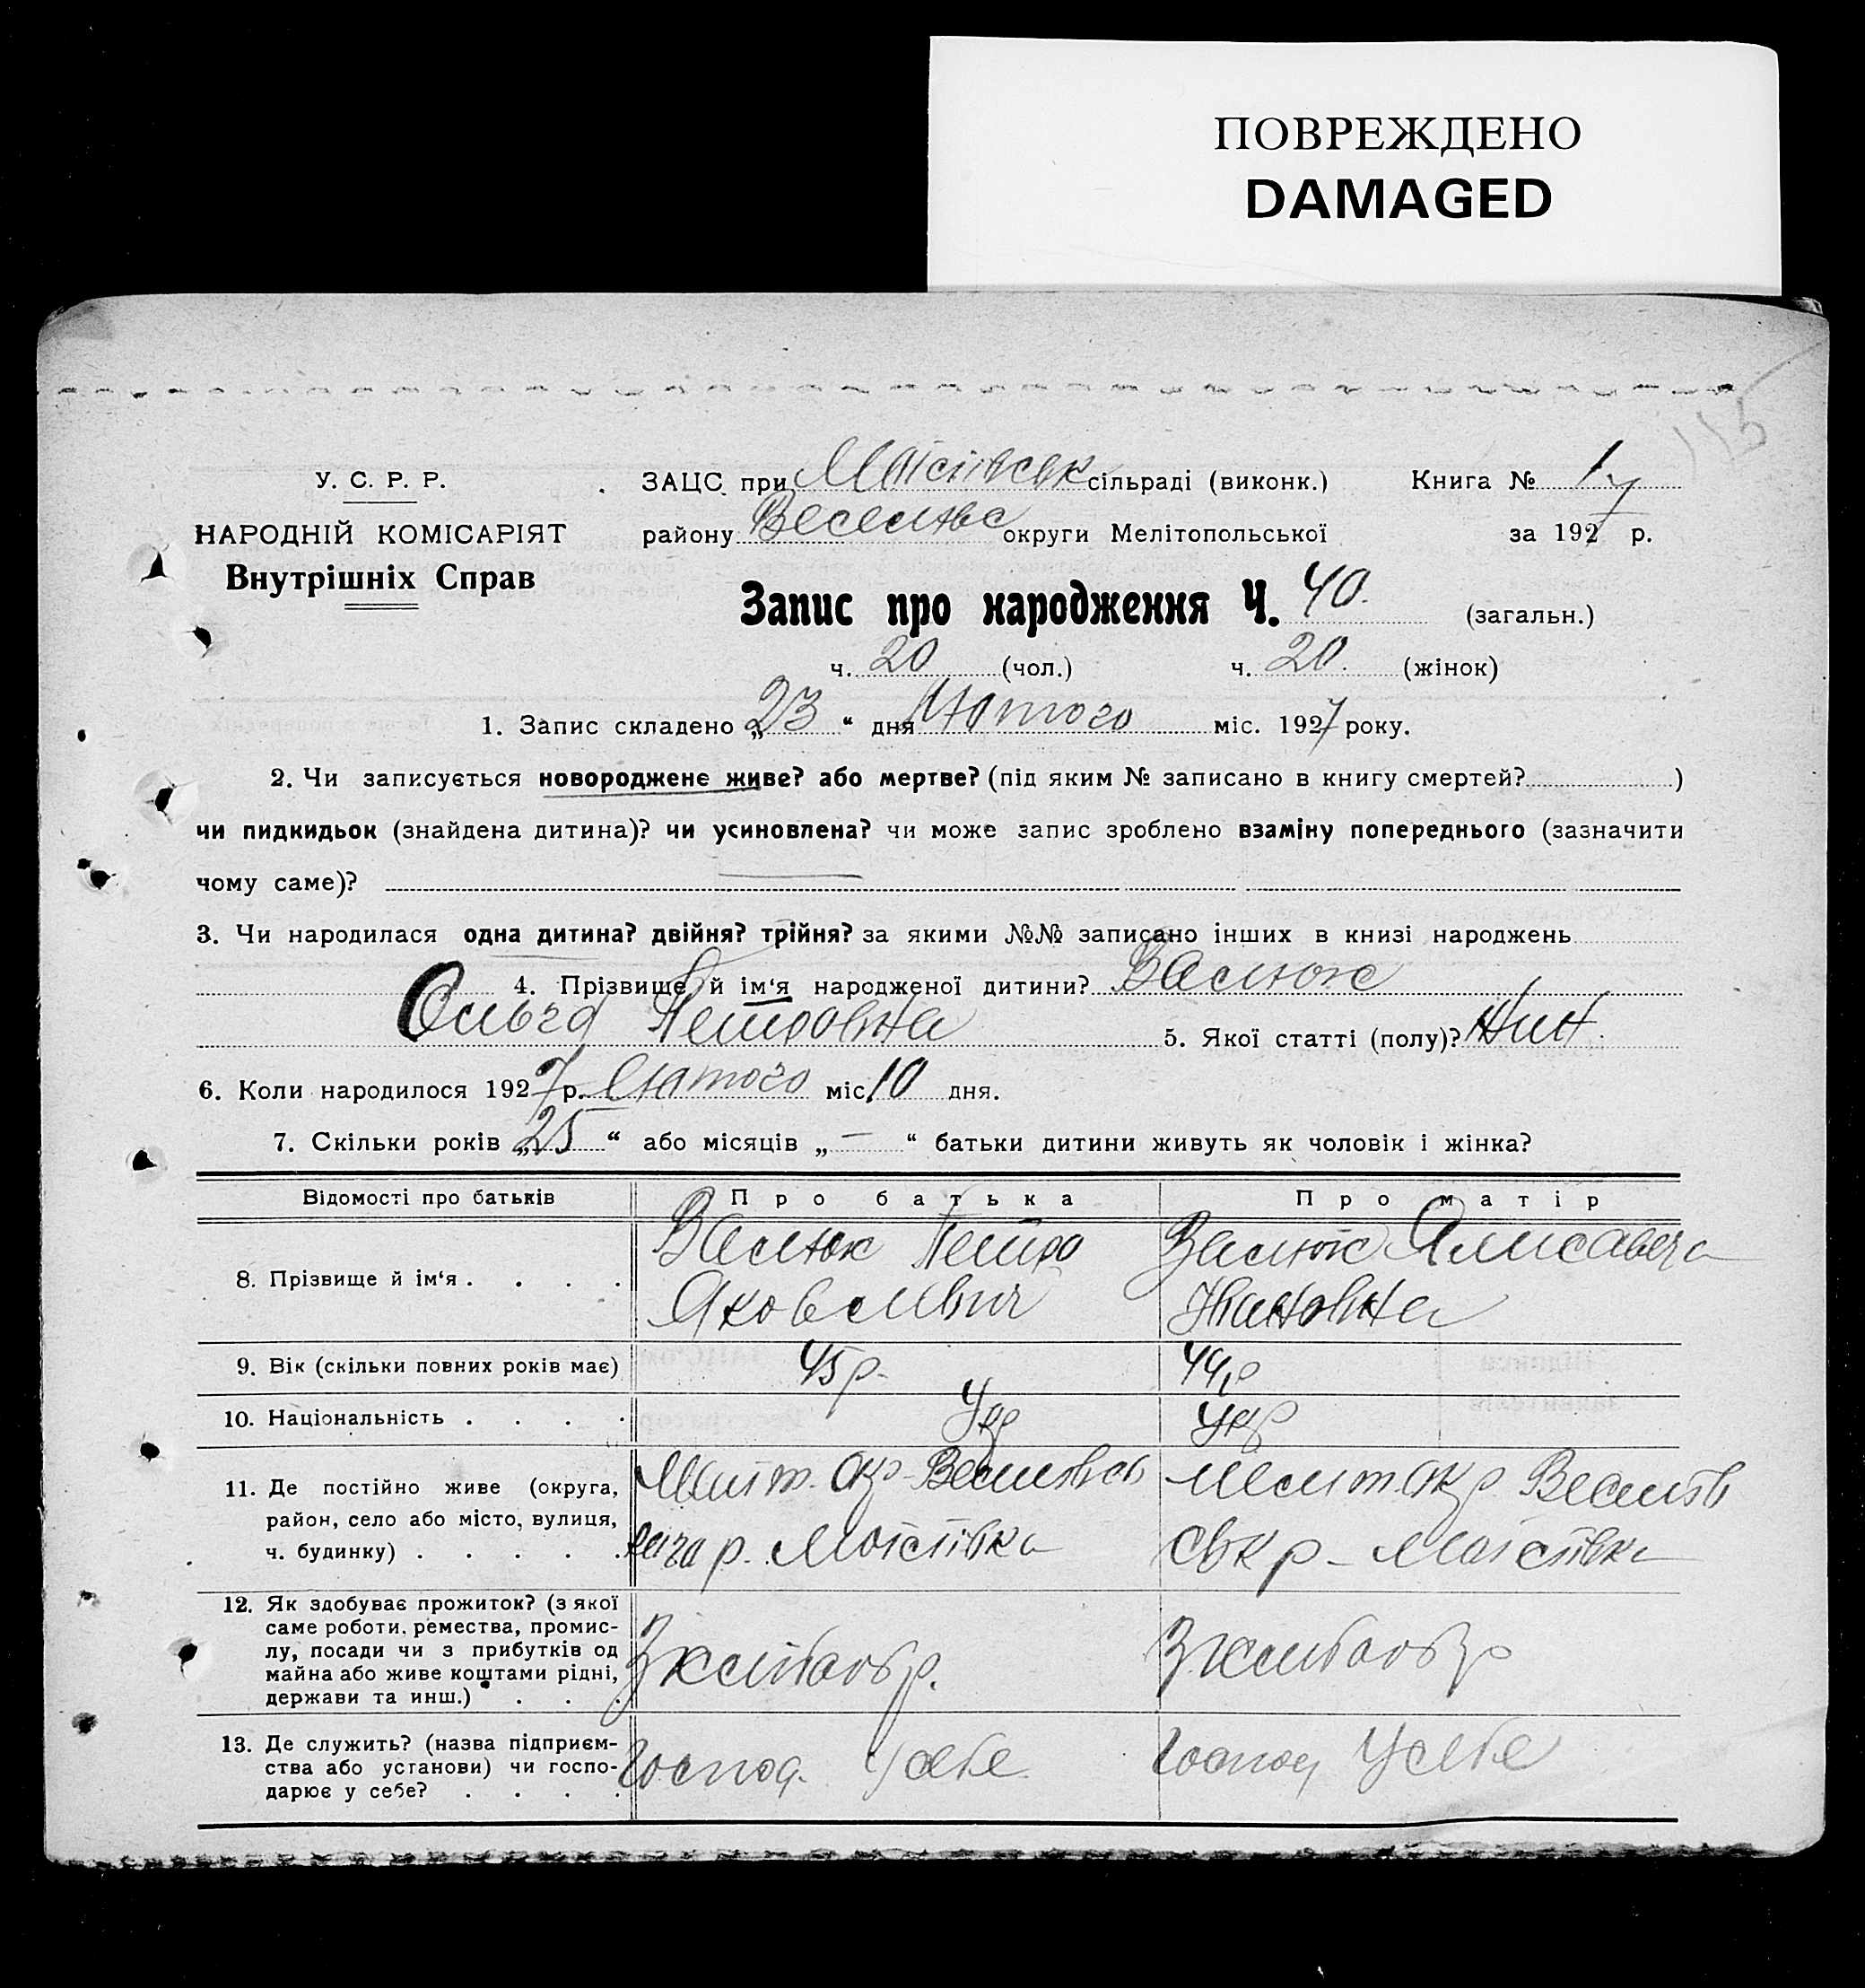 ПОВРЕЖДЕНО
DAMAGED
115
У. С. Р. Р.
НАРОДНІЙ КОМІСАРІЯТ
Внутрішніх Справ
ЗАЦС при сільраді (виконк.) Книга № 1
району Веселівс округи Мелітопольської за 1927 р.
Запис про народження Ч. 40. (загальн.)
ч. 20 (чол.) ч. 20. (жінок)
1. Запис складено „23“ дня Лютого міс. 1927 року.
2. Чи записується новороджене живе? або мертве? (під яким № записано в книгу смертей? )
чи пидкидьок (знайдена дитина)? чи усиновлена? чи може запис зроблено взаміну попереднього (зазначити
чому саме)?
3. Чи народилася одна дитина? двійня? трійня? за якими №№ записано інших в книзі народжень
4. Прізвище й ім‘я народженої дитини? Васлюк
Ольга Петровна 5. Якої статті (полу)? Жін.
6. Коли народилося 1927 р. Лютого міс. 10 дня.
7. Скільки років „25“ або місяців „—“ батьки дитини живуть як чоловік і жінка?
Відомості про батьків Про батька Про матір
8. Прізвище й ім‘я . . . . Васлюк Петро Яковлевич Васлюк Ялисавета Ивановна
9. Вік (скільки повних років має) 45 р. 44 р
10. Національність . . . . Укр Укр
11. Де постійно живе (округа,
район, село або місто, вулиця,
ч. будинку) . . . . . Меліт. окр. р. Меліт. окр. Веселів
ськ р-
12. Як здобуває прожиток? (з якої
саме роботи, ремества, промис-
лу, посади чи з прибутків од
майна або живе коштами рідні,
держави та инш.) . . . З хлібороб р. З хлібороб р
13. Де служить? (назва підприєм-
ства або установи) чи госпо-
дарює у себе? . . . . Господ. У себе Господ У себе